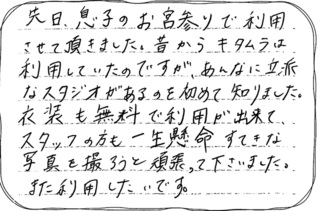 先日、息子のお宮参りで利用
させて頂きました。昔からキタムラは
利用していたのですが、あんなに立派
なスタジオがあるのを初めて知りました。
衣装も無料で利用が出来て、
スタッフの方も一生懸命すてきな
写真を撮ろうと頑張って下さいました。
また利用したいです。